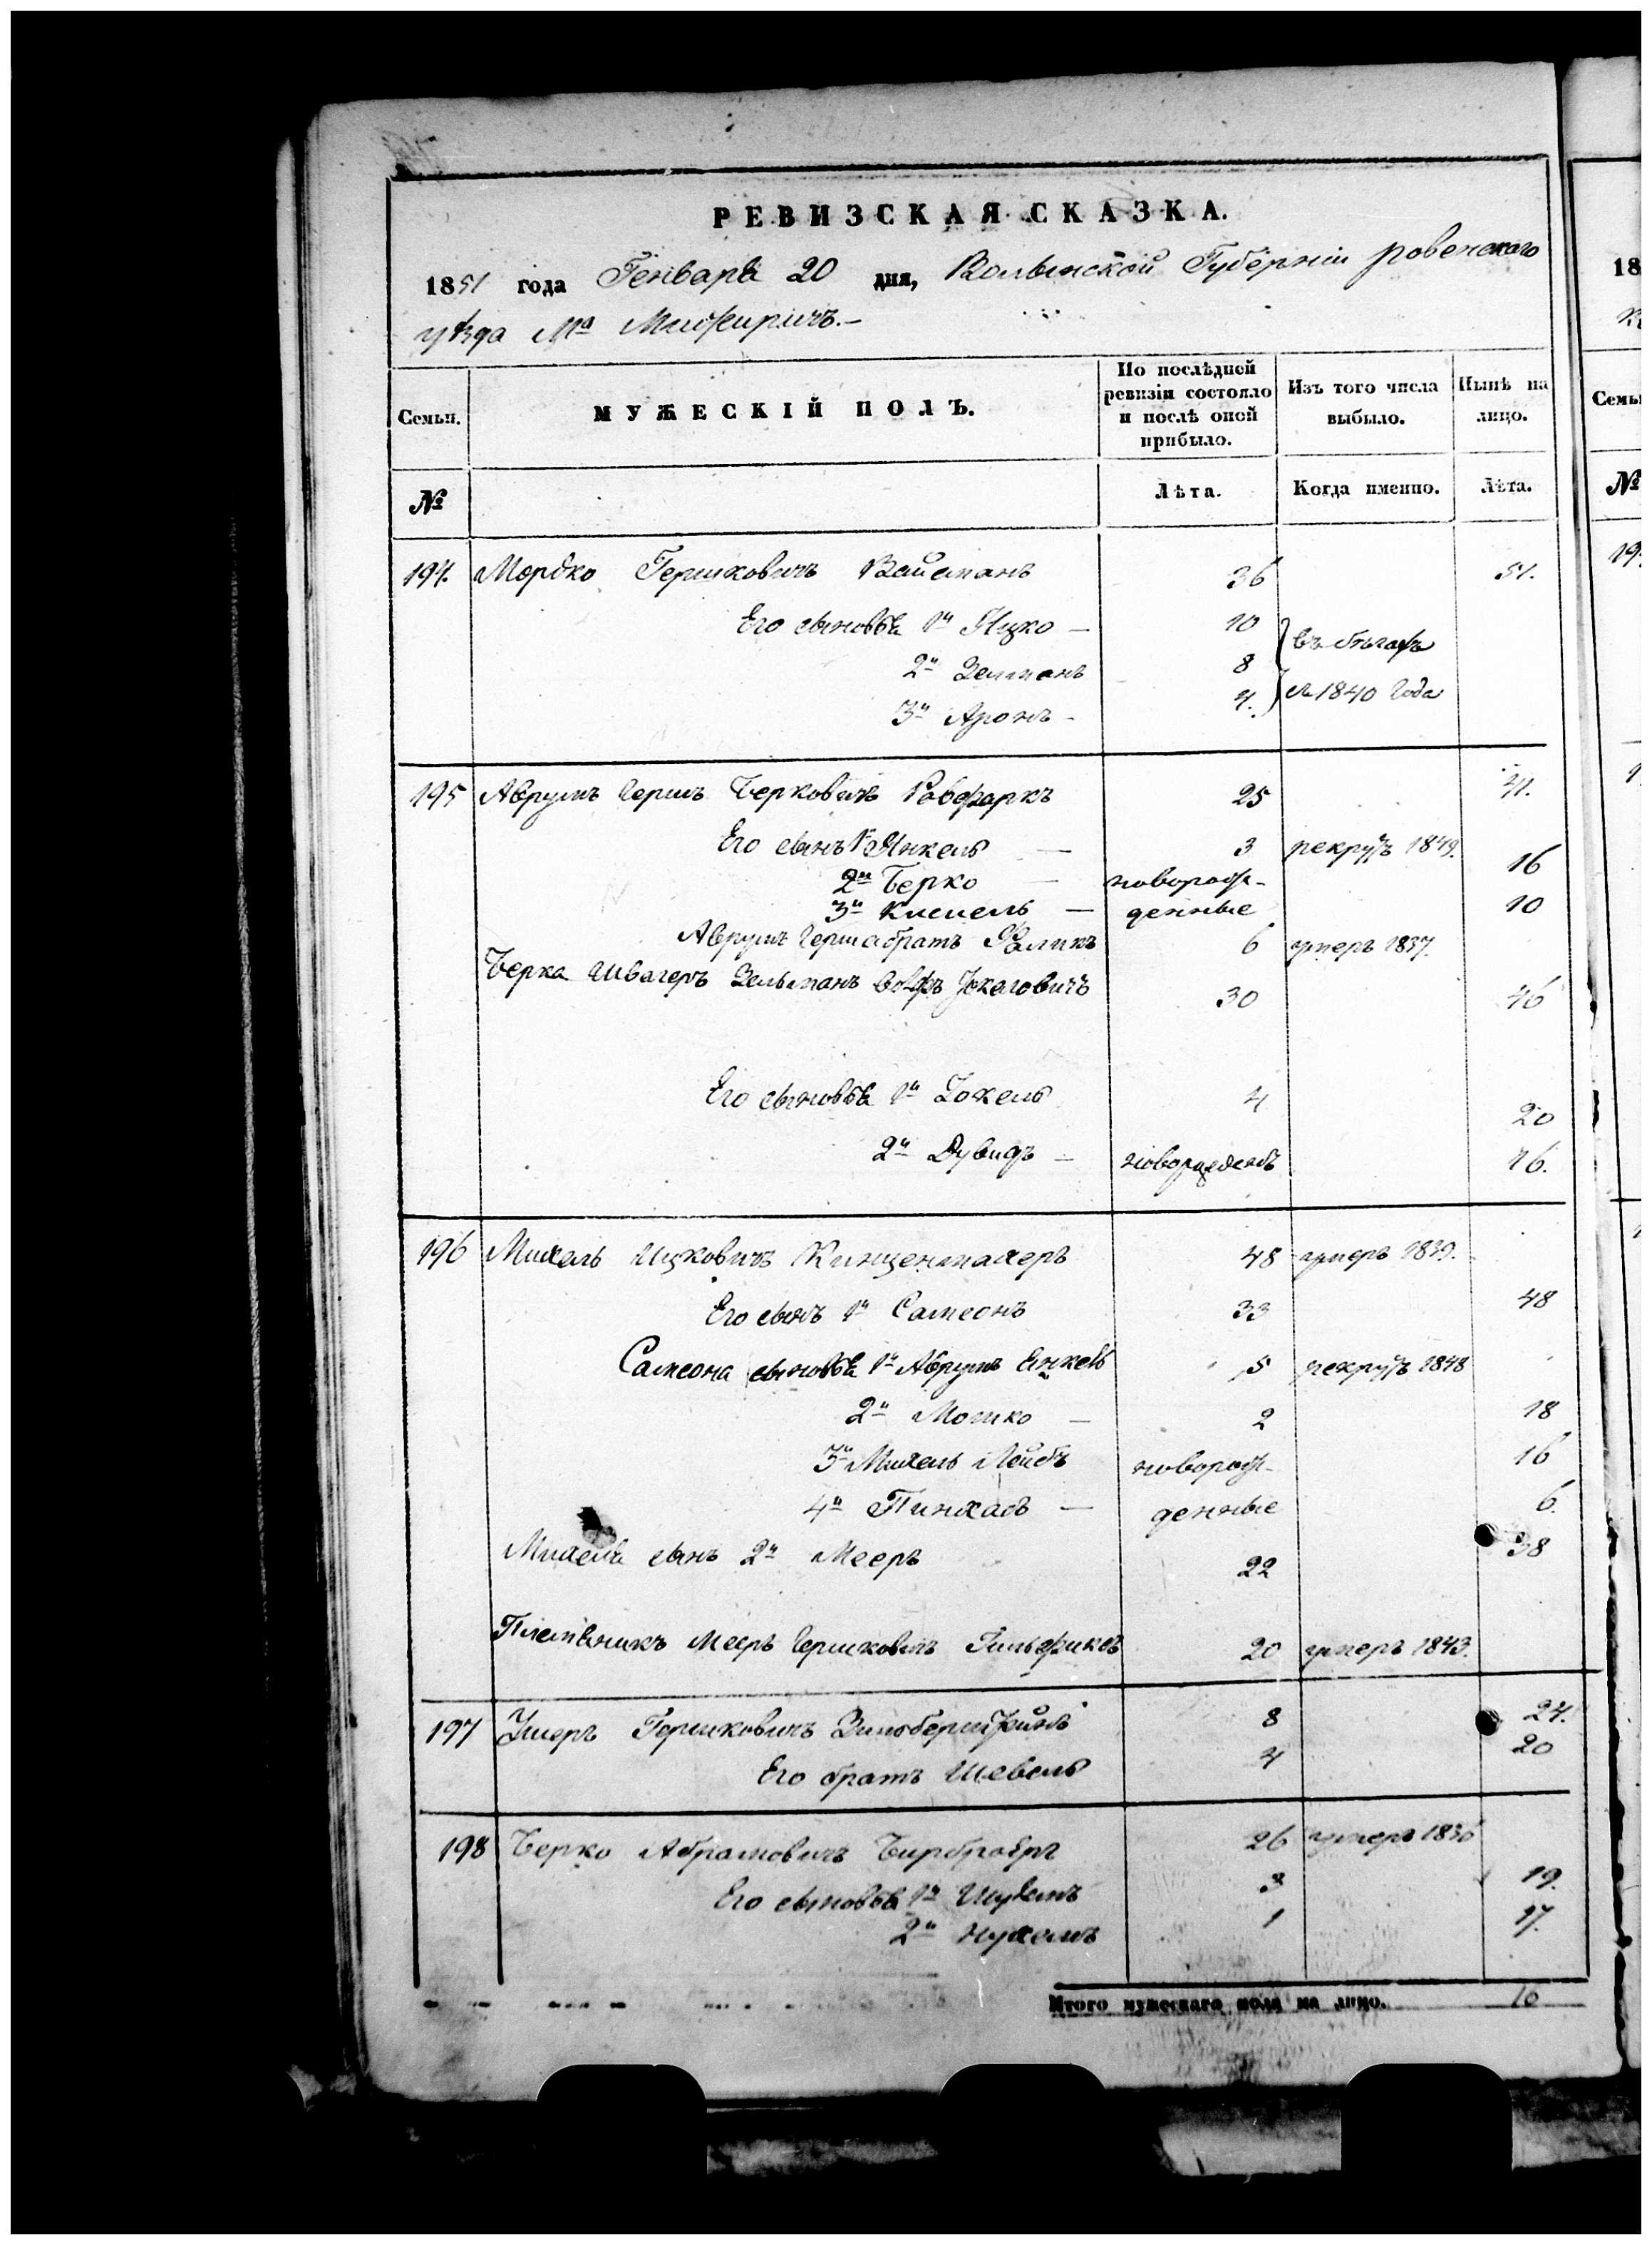 РЕВИЗСКАЯ СКАЗКА.
1851 года Генваря 20 дня, Волынской Губерніи ровенского
уѣзда Мa Межиричъ.—
Семьи. МУЖЕСКІЙ ПОЛЪ. По послѣдней ревизіи состояло и послѣ оной прибыло. Изъ того числа выбыло. Нынѣ на лицо.
№ Лѣта. Когда именно. Лѣта.
194. Мордко Гершковичъ Вайсманъ 36 51.
Его сыновья 1й Ицко — 10 въ бѣгахъ
2й Зельманъ 8
3й Аронъ - 4. съ 1840 Года
195 Аврумъ Гершъ Берковичъ 25 41.
Его сынъ 1й Янкель — 3 рекрутъ 1849.
2й Берко — новорож- 16
3й Кисиель — денные 10
Аврумъ Герша братъ Фаликъ 6 умеръ 1837.
Берка Швагеръ Зельманъ Вольфъ Іокеловичъ 30 46
Его сыновья 1й Іокель 4 20
2й Дувидъ — новорожденъ 16.
196 Михель Ицковичъ 48 умеръ 1839.
Его сынъ 1й Самсонъ 33 48
Самсона сыновья 1й Аврумъ Енкель 5 рекрутъ 1848
2й Мошко — 2 18
3й Михель Лейбъ новорож- 16
4й Пинхасъ — денные 6.
Михеля сынъ 2й Мееръ 22 38
Племѣникъ Мееръ Гершковичъ 20 умеръ 1843.
197 Ушеръ Гершковичъ 8 24.
Его братъ Шевель 4 20
198 Берко Абрамовичъ Бирбраеръ 26 умеръ 1836
Его сыновья 1й 3 19.
2й Нухемъ 1 17.
Итого мужескаго пола на лицо. 16
18
Семьи
№